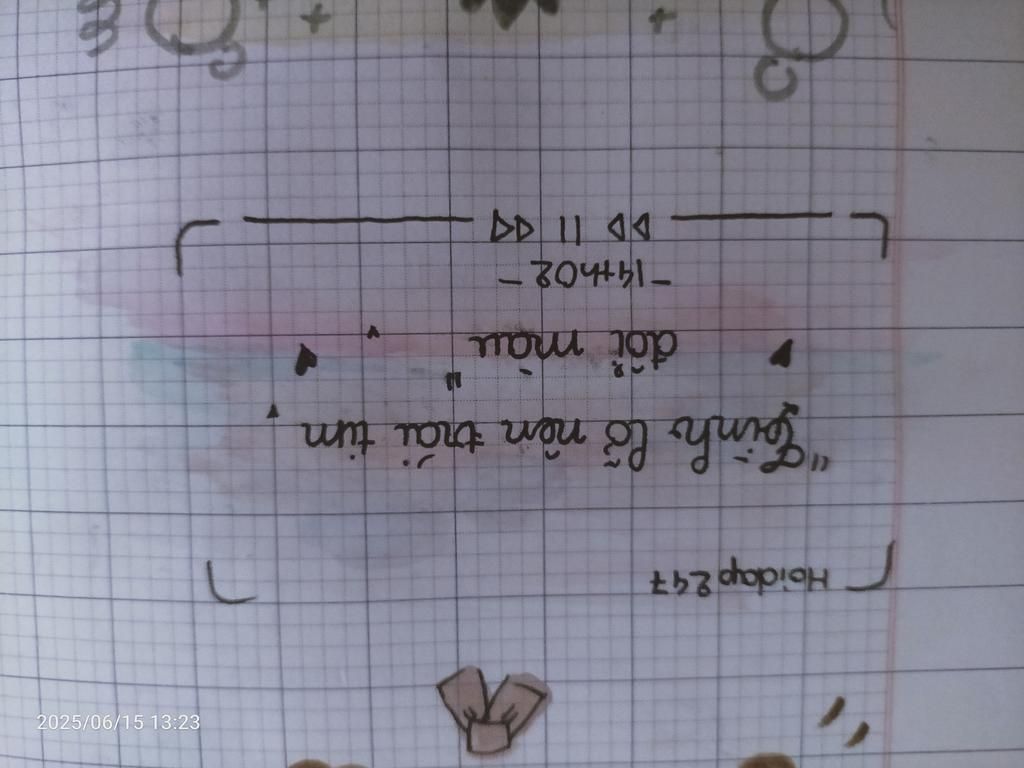 Hoidap247
"Tình lỡ nên trái tim
đổi màu "
-14th02-
2025/06/15 13:23